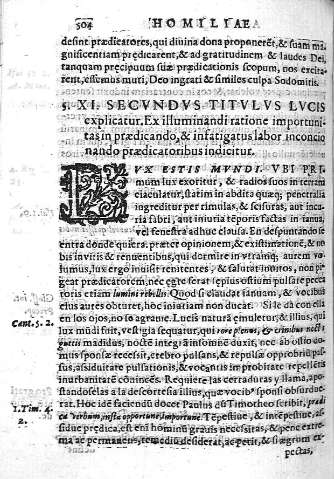 504 HOMILIAE
desint prædicatores, qui diuina dona proponerēt, & suam ma
gnificentiam prędicarent, & ad gratitudinem & laudes Dei,
tanquam pręcipuum suæ prædicationis scopum, nos excita
rent, essemus muti, Deo ingrati & similes culpa Sodomitis.
§. XI. SECVNDVS TITVLVS LVCIS
explicatur, Ex illuminandi ratione importuni
tas in prædicando, & infatigatus labor in concio
nando prædicatoribus indicitur.
VX ESTIS MVNDI. VBI PRI
mum lux exoritur, & radios suos in terram
eiaculatur, statim in abdita quæq; penetralia
ingreditur per rimulas, & scissuras, aut incu
ria fabri, aut iniuria tēporis factas in ianua,
vel fenestra adhuc clausa. En despuntando se
entra donde quiera. præter opinionem, & existimationē, & no
bis inuitis & renuentibus, qui dormire in vtramq; aurem vo
lumus, lux ergo inuisit renitentes, & salutat
great prædicatorem, nec ęgre ferat sępius ostium pulsare pecca
toris etiam lumini rebellis. Quod si claudat ianuam, & vocibus
eius aures obturet, hoc iniuriam non ducat. Si le dà con ella
en los ojos, no se agraue. Lucis naturā emuletur, & illius, qui
lux mūdi fuit, vestigia sequatur, qui rore plenus, & crinibus noct
Cant. 5. 2. guttis madidus, noctē integrā insomnē duxit, nec ab ostio do
mus sponsæ recessit, crebro pulsans, & repulsæ opprobriū pas
sus, assiduitate pulsationis, & vocantis improbitate repellētis
inurbanitatē conincēs. Requiere las cerraduras y llama, apo-
standoselas a la descortesia illius, quæ vocibꝰ sponsi obsurdue
1. Tim. 4. rat. Hoc idē faciendū docet Paulus dū Timotheo scribit, prædi
2. ca verbum, insta opportunè, importunè. Tēpestiue, & intēpestiue, as
siduè prędica, est enī hominū gnauis necessitas, & penè extrema
ac permanens, remediū desiderat, ac petit, & si ægrum ex-
pectas,